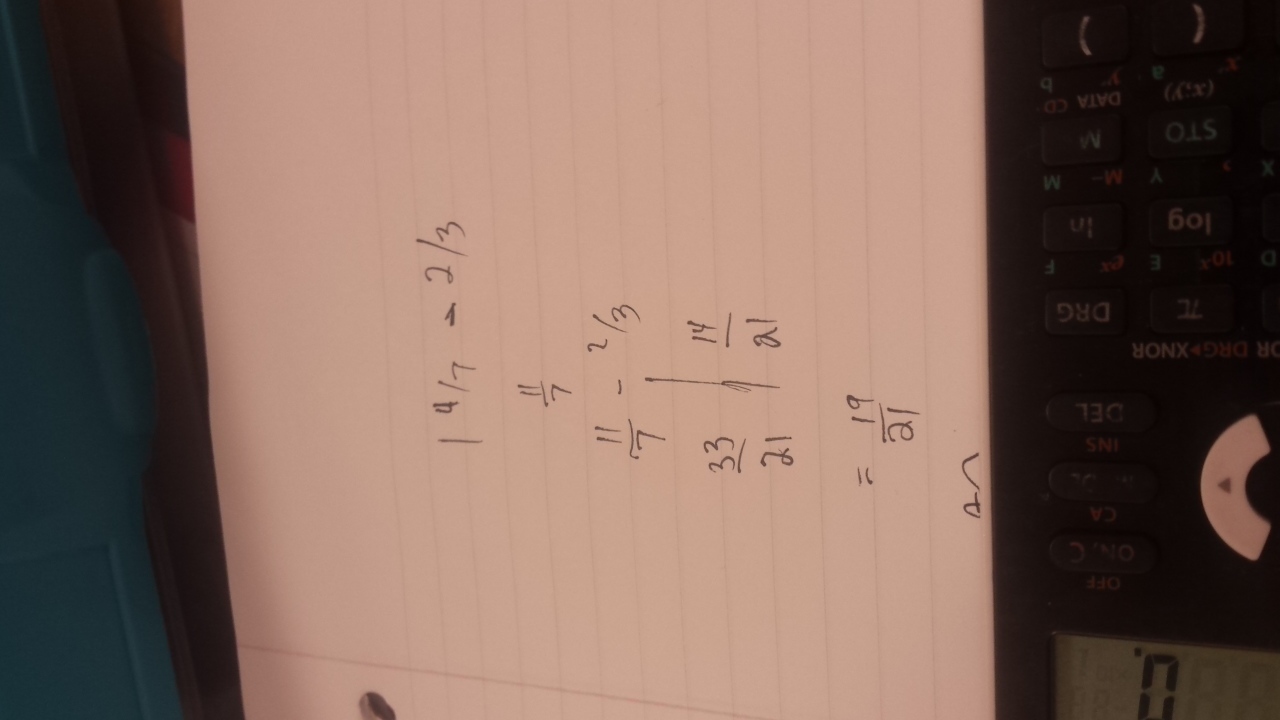 1 4/7 - 2/3
11/7
11/7 - 2/3
33/21 | 14/21
= 19/21
) (
b y' a x'
DATA CD (x,y)
M STO
M M- Y X
ln log
F eˣ E 10ˣ D
DRG π
XNOR DRG► OR
DEL
INS
CA
ON, C
OFF